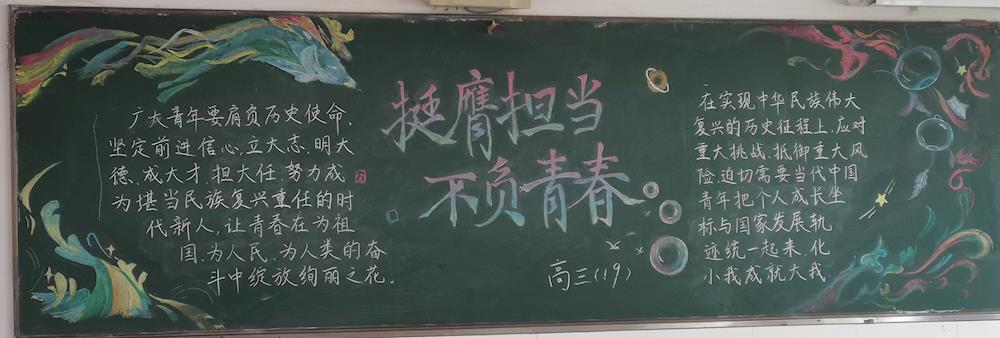 广大青年要肩负历史使命、
坚定前进信心,立大志、明大
德、成大才、担大任,努力成
为堪当民族复兴重任的时
代新人,让青春在为祖
国、为人民、为人类的奋
斗中绽放绚丽之花。
挺膺担当
不负青春
高三(19)
在实现中华民族伟大
复兴的历史征程上,应对
重大挑战、抵御重大风
险,迫切需要当代中国
青年把个人成长坐
标与国家发展轨
迹统一起来,化
小我成就大我